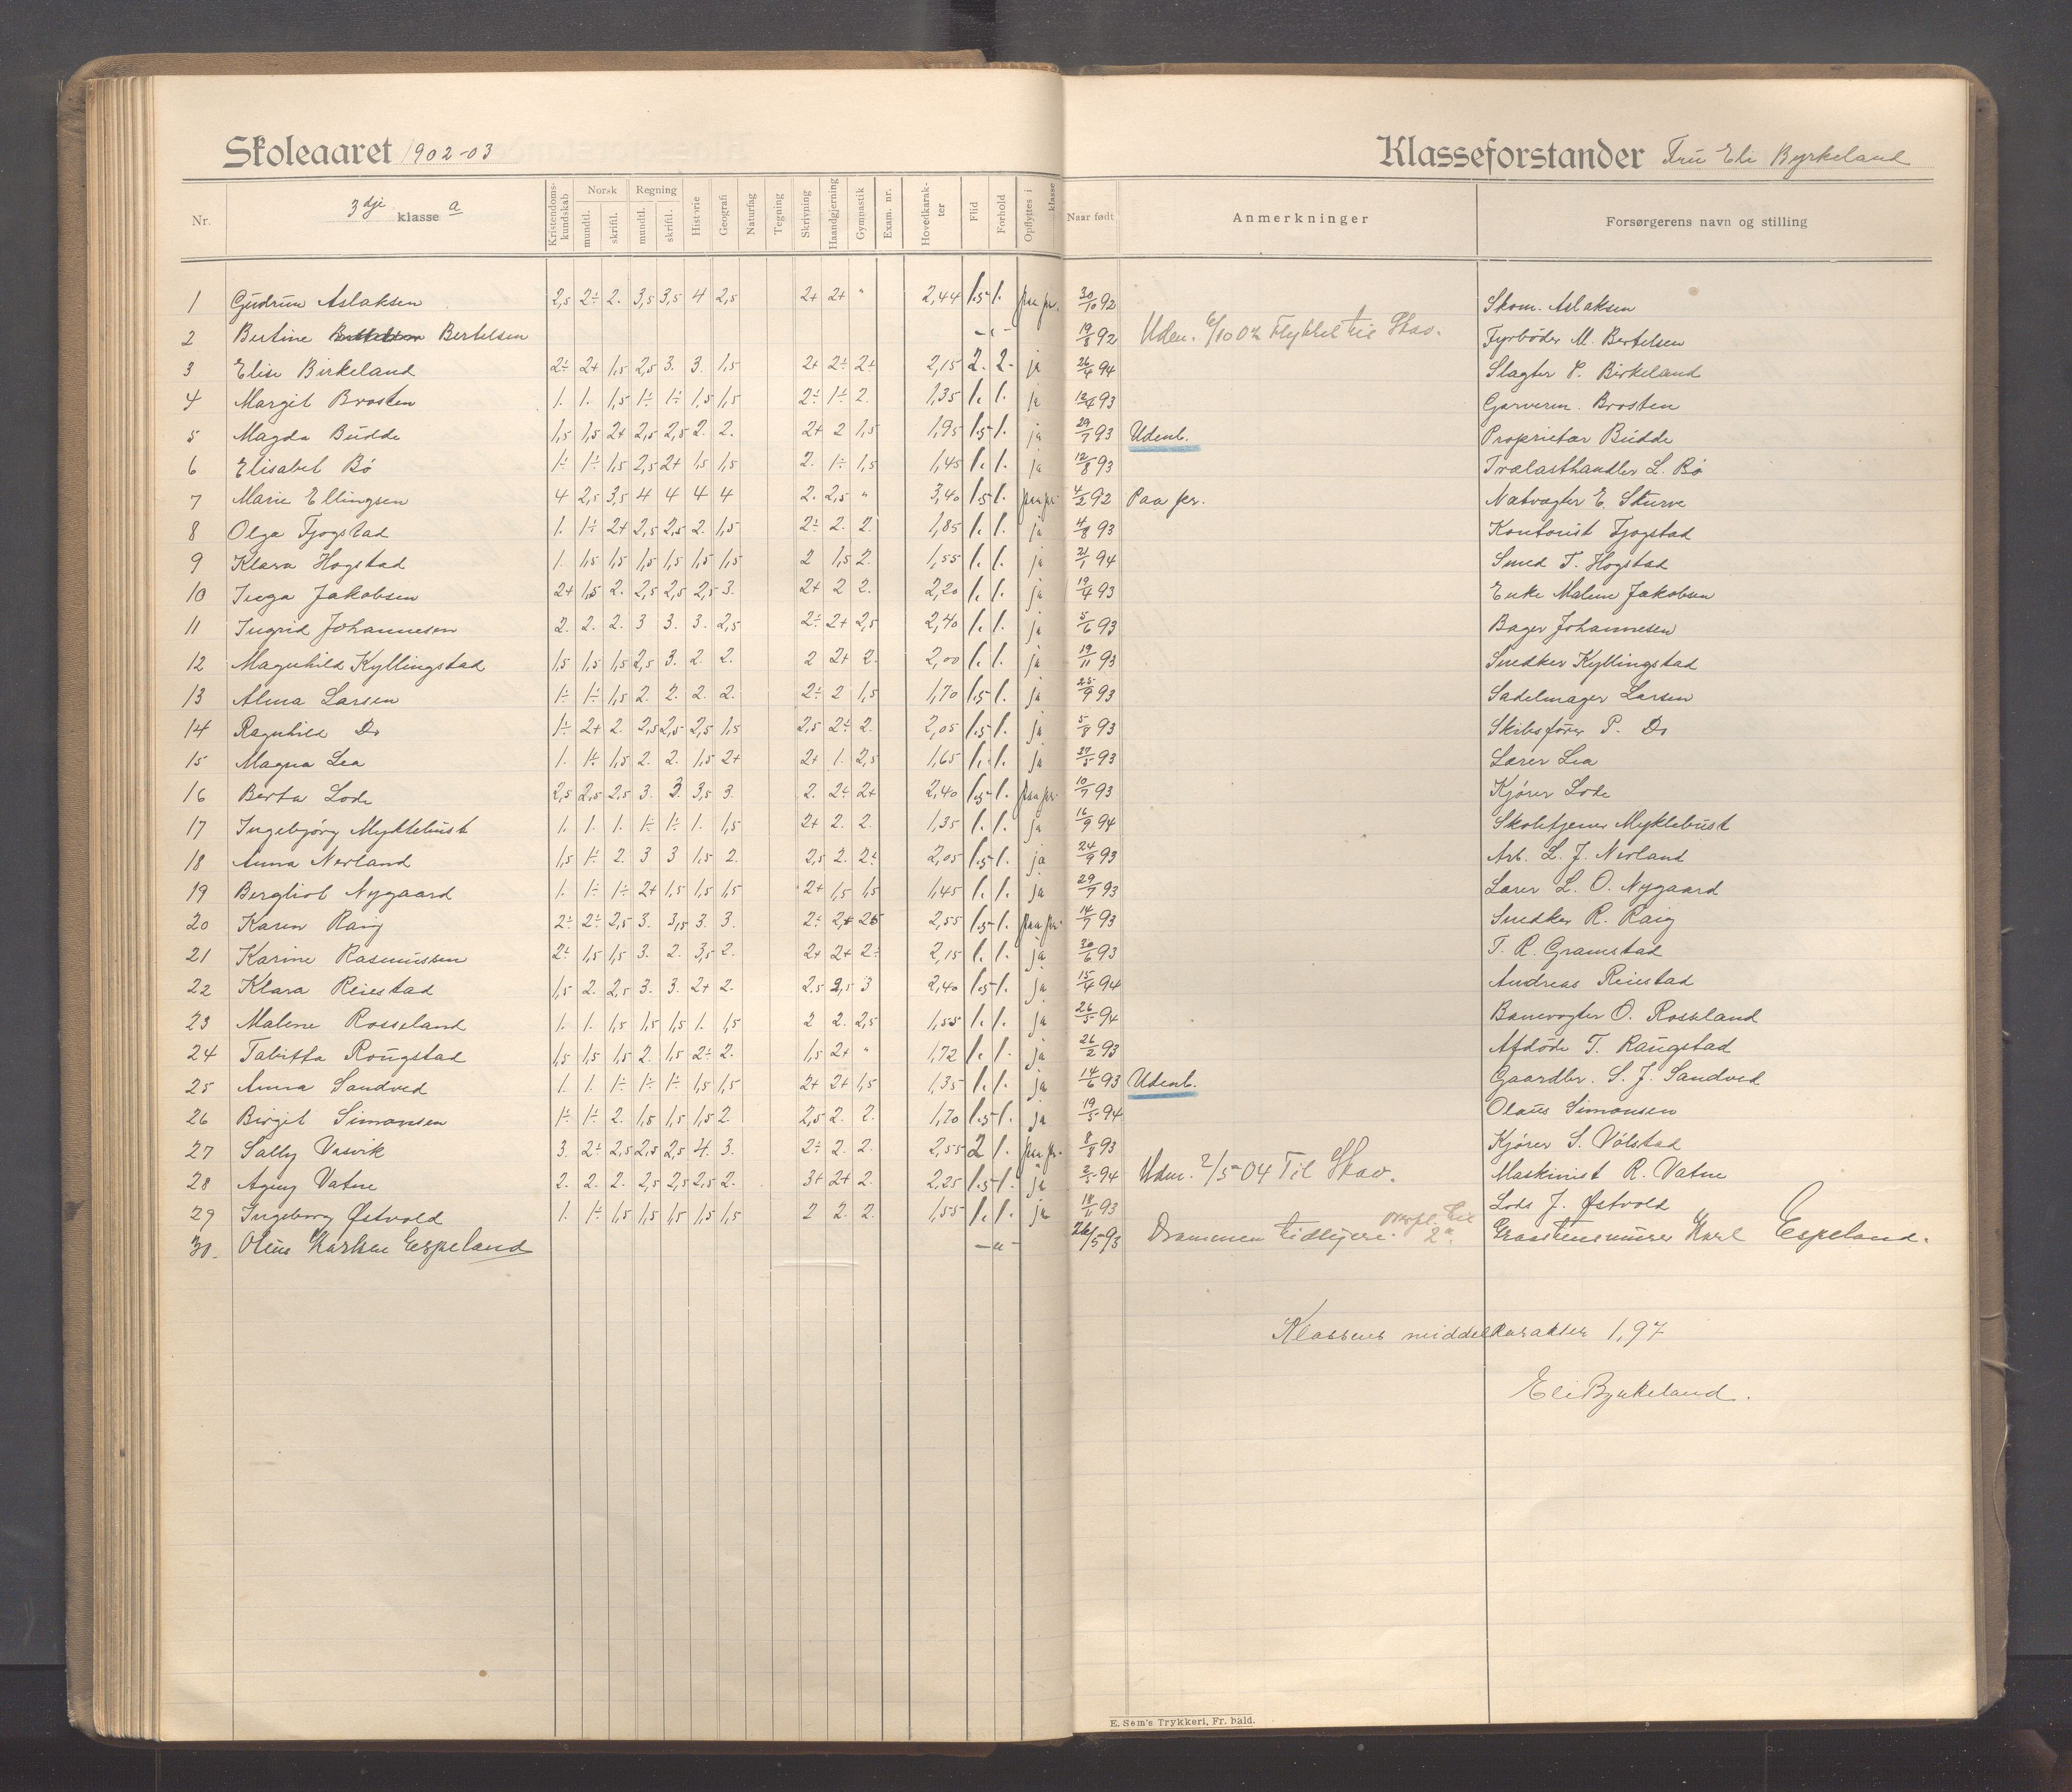 Skoleaaret 1902-03
Klasseforstander Fru Eli Byrkeland
Nr. 3dje klasse a Kristendomskundskab Norsk mundtl. skriftl. Regning mundtl. skriftl. Historie Geografi Naturfag Tegning Skrivning Haandgjerning Gymnastik Exam. nr. Hovedkarakter Flid Forhold Opflyttes i klasse Naar født Anmerkninger Forsørgerens navn og stilling
1 Gudrun Aslaksen 2,5 2÷ 2. 3,5 3,5 4 2,5 2+ 2+ " 2,44 1.5 1. paa pr. 30/10 92 Skom. Aslaksen
2 Bertine Bertelsen -"- 19/8 92 Uden. 6/10 02 Flyttet til Stav. Fyrbøder M. Bertelsen
3 Elise Birkeland 2÷ 2+ 1,5 2,5 3. 3. 1,5 2+ 2÷ 2÷ 2,15 2. 2- ja 26/4 94 Slagter P. Birkeland
4 Margit Brosten 1. 1. 1,5 1÷ 1÷ 1,5 1,5 2÷ 1÷ 2. 1,35 1. 1. ja 12/4 93 Garverm. Brosten
5 Magda Budde 1,5 1,5 2+ 2,5 2,5 2. 2. 2+ 2 1,5 1,95 1.5 1. ja 29/7 93 Udenb. Proprietær Budde
6 Elisabet Bø 1÷ 1÷ 1,5 2,5 2+ 1,5 1,5 2. 1÷ 1,5 1,45 1. 1. ja 12/8 93 Trælasthandler L. Bø
7 Marie Ellingsen 4 2,5 3,5 4 4 4 4 2. 2,5 " 3,40 1.5 1. paa pr. 4/2 92 Paa pr. Natvægter E. Sturve
8 Olga Fjogstad 1. 1÷ 2+ 2,5 2,5 2. 1,5 2÷ 2. 2. 1,85 1. 1. ja 4/8 93 Kontorist Fjogstad
9 Klara Hogstad 1. 1,5 1,5 1,5 1,5 1,5 1,5 2 1,5 2. 1,55 1. 1. ja 21/1 94 Smed T. Hogstad
10 Inga Jakobsen 2+ 1,5 2. 2,5 2,5 2,5 3. 2+ 2 2. 2,20 1. 1. ja 19/4 93 Enke Malene Jakobsen
11 Ingrid Johannesen 2. 2. 2. 3 3. 3. 2,5 2÷ 2+ 2,5 2,40 1. 1. ja 5/6 93 Bager Johannesen
12 Magnhild Kyllingstad 1,5 1,5 1,5 2,5 3. 2. 2. 2 2+ 2. 2,00 1. 1. ja 19/11 93 Snedker Kyllingstad
13 Alma Larsen 1÷ 1÷ 1,5 2. 2. 2. 2. 2÷ 2 1,5 1,70 1.5 1. ja 25/9 93 Sadelmager Larsen
14 Ragnhild Do 1÷ 2+ 2. 2,5 2,5 2,5 1,5 2,5 2÷ 2. 2,05 1.5 1. ja 5/8 93 Skibsfører P. Do
15 Magna Lea 1. 1÷ 1,5 2. 2. 1,5 2+ 2+ 1. 2,5 1,65 1. 1. ja 27/5 93 Lærer Lea
16 Berta Lode 2,5 2,5 2,5 3. 3. 3,5 3. 2. 2÷ 2+ 2,40 1.5 1. paa pr. 10/7 93 Kjører Lode
17 Ingebjørg Myklebust 1. 1. 1. 1÷ 1÷ 1. 1,5 2+ 2. 2. 1,35 1. 1. ja 16/9 94 Skoletjener Myklebust
18 Anna Nerland 1,5 1÷ 2. 3 3 1,5 2. 2,5 2. 2÷ 2,05 1.5 1. ja 24/9 93 Arb. L. J. Nerland
19 Bergliot Nygaard 1. 1÷ 1÷ 2+ 1,5 1,5 1,5 2+ 1,5 1,5 1,45 1. 1. ja 29/7 93 Lærer L. O. Nygaard
20 Karen Raig 2÷ 2÷ 2,5 3. 3,5 3. 3. 2÷ 2+ 25 2,55 1.5 1. paa pr. 14/7 93 Snedker R. Raig
21 Karine Rasmussen 2÷ 1,5 1,5 3. 2. 3,5 2. 2+ 2+ 2÷ 2,15 1. 1. ja 30/6 93 T. R. Gramstad
22 Klara Reiestad 1,5 2. 2,5 3. 3. 2+ 2. 2,5 2,5 3 2,40 1.5 1. ja 15/4 94 Andreas Reiestad
23 Malene Rosseland 1. 1. 1,5 1,5 1,5 1. 1,5 2 2. 2,5 1,55 1. 1. ja 26/5 94 Banevogter O. Rosseland
24 Tabitta Rougstad 1,5 1,5 1,5 2. 1,5 2÷ 2. 1,5 2+ " 1,72 1. 1. ja 26/2 93 Afdøde T. Raugstad
25 Anna Sandved 1. 1. 1÷ 1÷ 1÷ 1,5 1,5 2+ 2+ 1,5 1,35 1. 1. ja 14/6 93 Udenb. Gaardbr. S. J. Sandved
26 Birgit Simonsen 1÷ 1÷ 2. 1,5 1,5 1,5 2. 2,5 2. 2. 1,70 1.5 1. ja 19/5 94 Olaus Simonsen
27 Sally Vasvik 3. 2÷ 2,5 2,5 2,5 4. 3. 2÷ 2. 2. 2,55 2 1. paa pr. 8/8 93 Kjører S. Vølstad
28 Ageng Vatne 2. 2. 2. 2,5 2,5 2,5 2. 3+ 2+ 2. 2,25 1.5 1. ja 2/5 94 Uden. 2/5-04 Til Stav. Maskinist R. Vatne
29 Ingeborg Østvold 1. 1÷ 1,5 1,5 1,5 1,5 1,5 2 2. 2. 1,55 1. 1. ja 18/11 93 Lods J. Østvold
30. Espeland -"- 26/5 93 Drammen tidligere. overfl. til 2a. Graastensmurer Karl Espeland.
Klassens middelkarakter 1,97
Eli Byrkeland.
E. Sem's Trykkeri, Fr. hald.